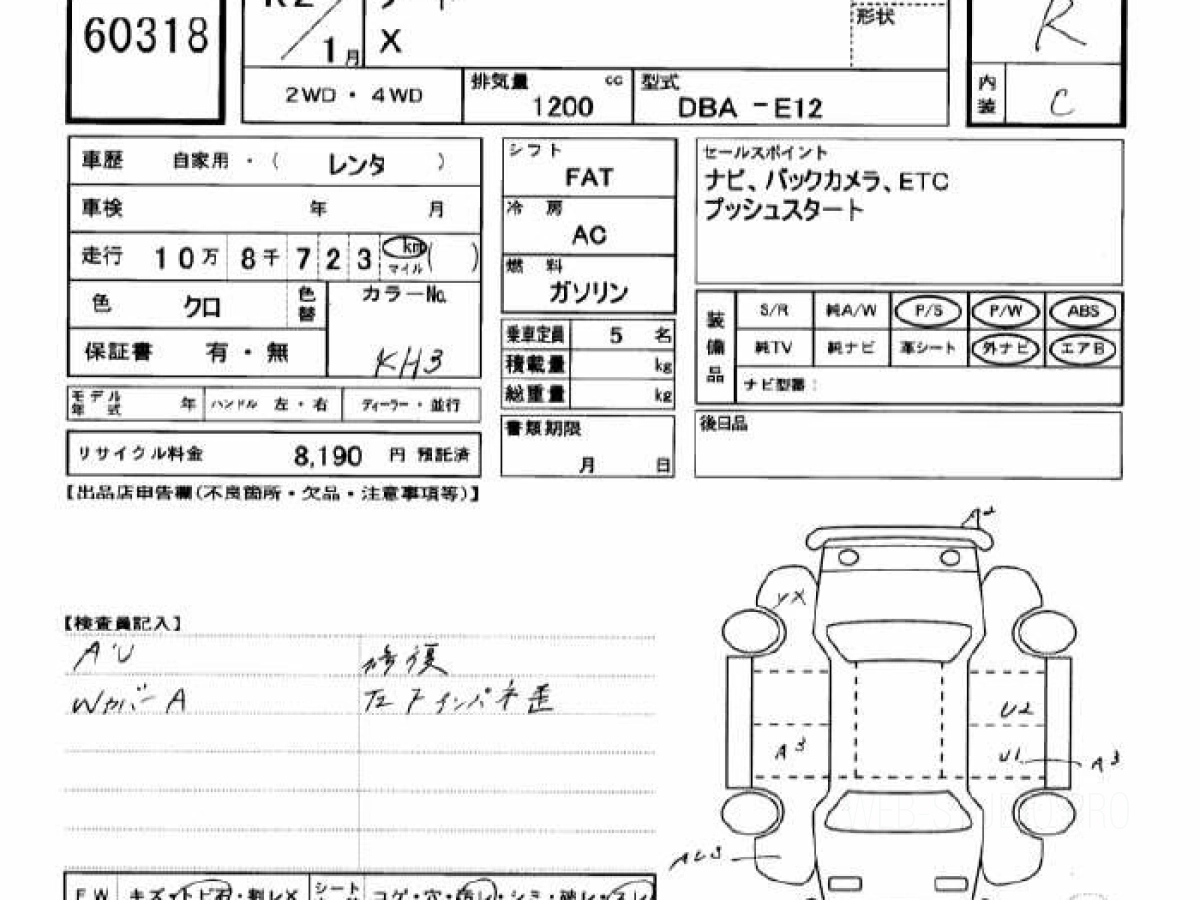 60318
1月
X
形状
R
2WD・4WD
排気量 cc
1200
型式
DBA -E12
内装
C
車歴 自家用・( レンタ )
車検 年 月
走行 10万 8千 723 km マイル ( )
色 クロ 色替
カラーNo.
KH3
保証書 有・無
モデル年式 年 ハンドル 左・右 ディーラー・並行
リサイクル料金 8,190 円 預託済
シフト
FAT
冷房
AC
燃料
ガソリン
乗車定員 5 名
積載量 kg
総重量 kg
書類期限
月 日
セールスポイント
ナビ、バックカメラ、ETC
プッシュスタート
装備品
S/R 純A/W P/S P/W ABS
純TV 純ナビ 革シート 外ナビ エアB
ナビ型番:
後日品
【出品店申告欄(不良箇所・欠品・注意事項等)】
【検査員記入】
A'U
Wカバー A
修復
左フインパネ歪
A2
YX
U2
A3
U1
A3
WEB-S
PRO
FW キズ・トビ石・割レX
シート
コゲ・穴・汚レ・シミ・破レ・スレ